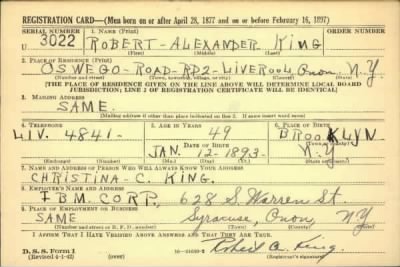 REGISTRATION CARD—(Men born on or after April 28, 1877 and on or before February 16, 1897)
SERIAL NUMBER 1. NAME (Print) ORDER NUMBER
U 3022 ROBERT-ALEXANDER KING
(First) (Middle) (Last)
2. PLACE OF RESIDENCE (Print)
OSWEGO-ROAD-RD2-LIVEROOL Onon. N.Y
(Number and street) (Town, township, village, or city) (County) (State)
[THE PLACE OF RESIDENCE GIVEN ON THE LINE ABOVE WILL DETERMINE LOCAL BOARD
JURISDICTION; LINE 2 OF REGISTRATION CERTIFICATE WILL BE IDENTICAL]
3. MAILING ADDRESS
SAME.
[Mailing address if other than place indicated on line 2. If same insert word same]
4. TELEPHONE 5. AGE IN YEARS 6. PLACE OF BIRTH
LIV. 4841- 49 BROOKLYN
DATE OF BIRTH (Town or county)
JAN. 12-1893- N.Y
(Exchange) (Number) (Mo.) (Day) (Yr.) (State or country)
7. NAME AND ADDRESS OF PERSON WHO WILL ALWAYS KNOW YOUR ADDRESS
CHRISTINA C. KING.
8. EMPLOYER'S NAME AND ADDRESS
IBM. CORP. 628 S. Warren St.
9. PLACE OF EMPLOYMENT OR BUSINESS
SAME Syracuse, Onon, NY
(Number and street or R. F. D. number) (Town) (County) (State)
I AFFIRM THAT I HAVE VERIFIED ABOVE ANSWERS AND THAT THEY ARE TRUE.
D. S. S. Form 1
(Revised 4-1-42) Robert A. King.
(Registrant's signature)